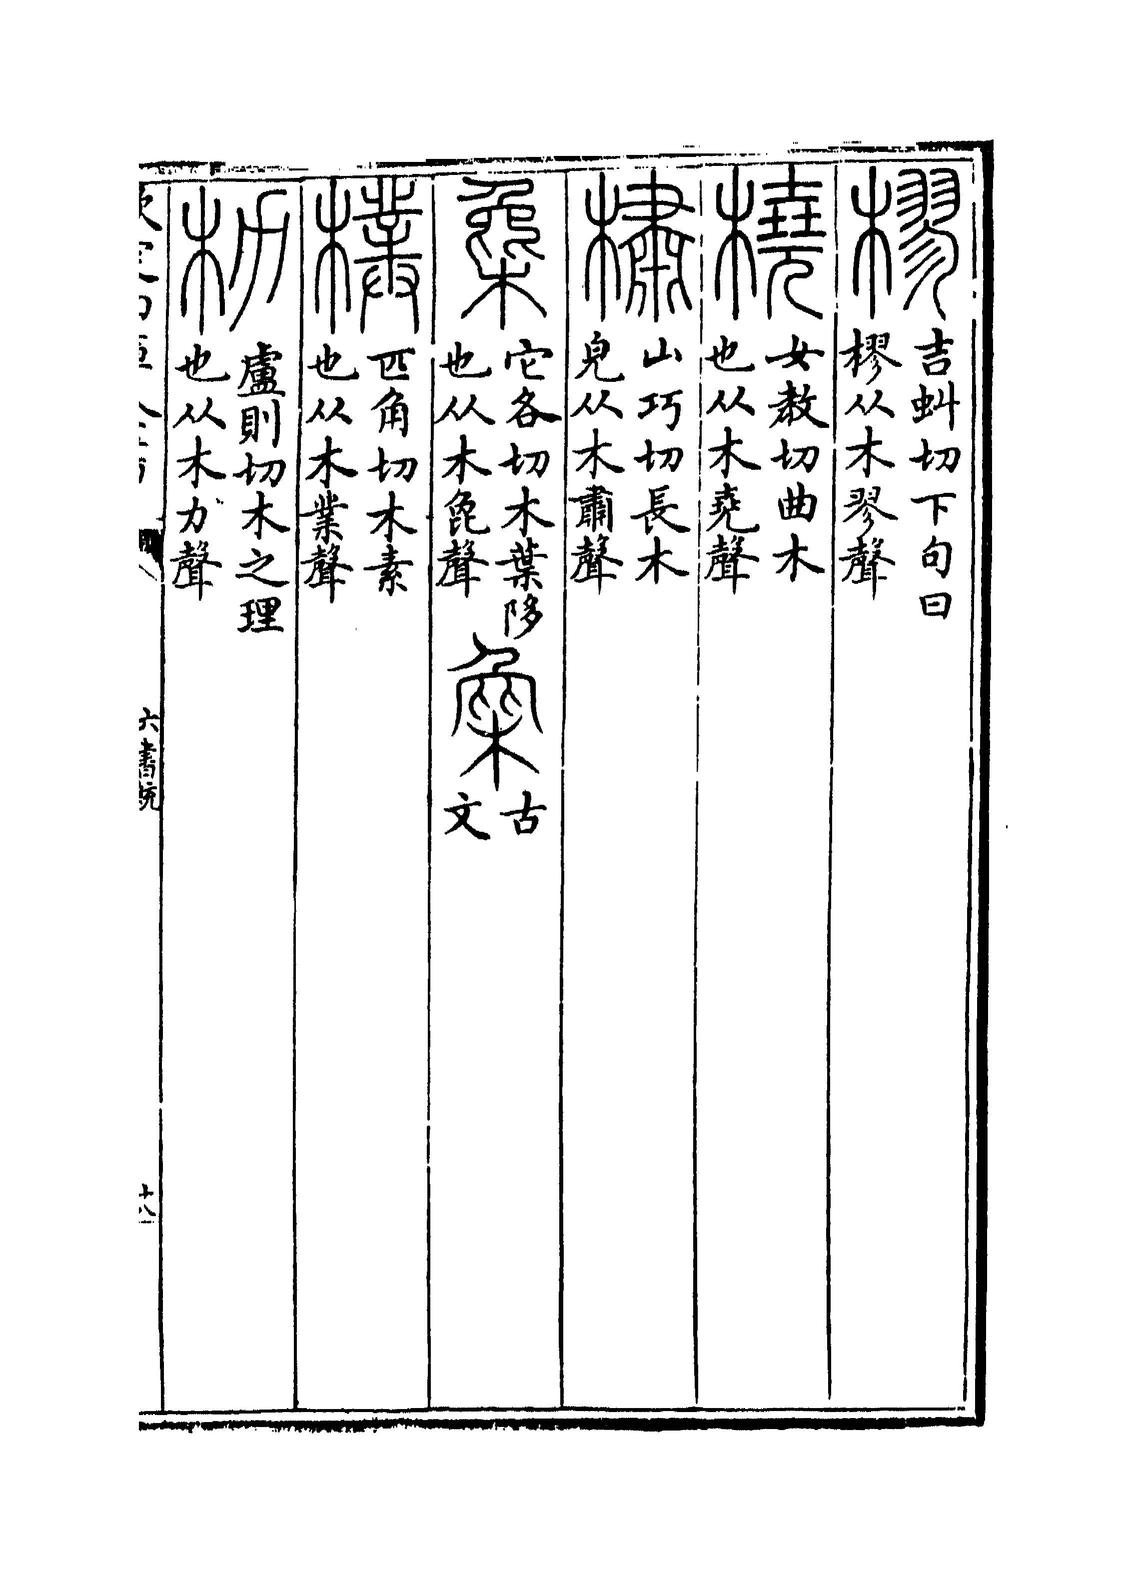 樛 吉虯切下句曰
樛从木翏聲
橈 女教切曲木
也从木堯聲
橚 山巧切長木
皃从木肅聲
㯱 它各切木葉陊
也从木㲋聲
古
文
樸 匹角切木素
也从木菐聲
朸 盧則切木之理
也从木力聲
六書統
十八